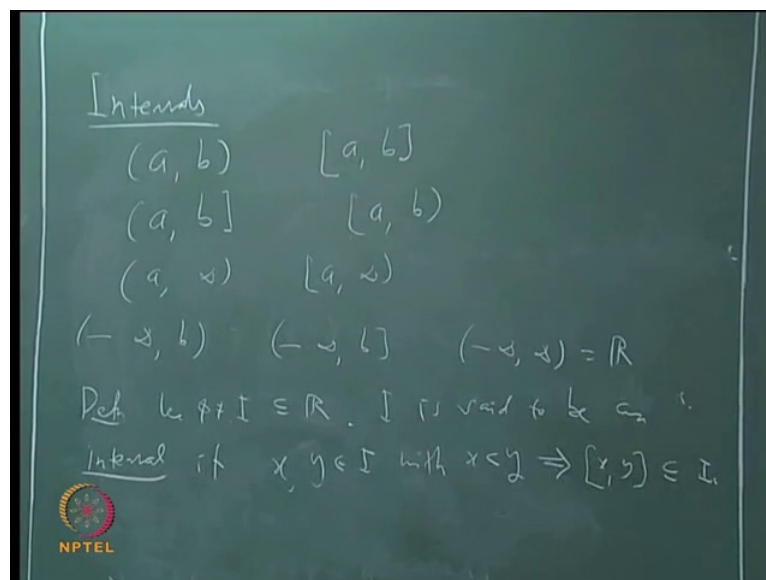 Intervals
(a, b) [a, b]
(a, b] [a, b)
(a, ∞) [a, ∞)
(-∞, b) (-∞, b] (-∞, ∞) = ℝ
Defn let φ ≠ I ⊆ ℝ. I is said to be an
interval if x, y ∈ I with x < y ⇒ [x, y] ⊆ I.
NPTEL